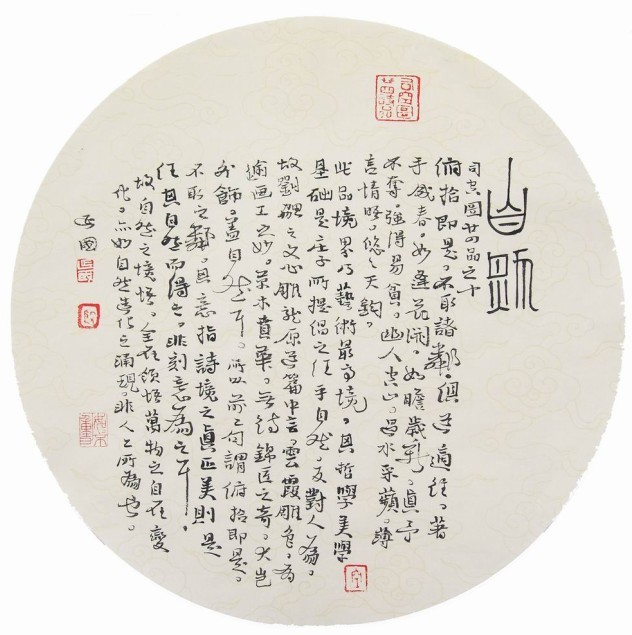 自然
司空圖廿四品之十
俯拾即是。不取諸鄰。俱道適往。著
手成春。如逢花開。如瞻歲新。真予
不奪。強得易貧。幽人空山。過水采蘋。薄
言情晤。悠悠天鈞。
此品境界乃藝術最高境。其哲學美學
基础是莊子所提倡之任乎自然。反對人為。
故劉勰之文心雕龍原道篇中言。雲霞雕色。有
逾画工之妙。草木賁華。無待錦匠之奇。夫豈
外飾。蓋自然耳。所以前二句謂俯拾即是。
不取之鄰。其意指詩境之真正美則是
任其自然而得之。非刻意為之耳。
故自然之境悟。全在領悟萬物之自在變
化。亦如自然造化之涌現。非人工所為也。
國
司空圖廿四詩品
空